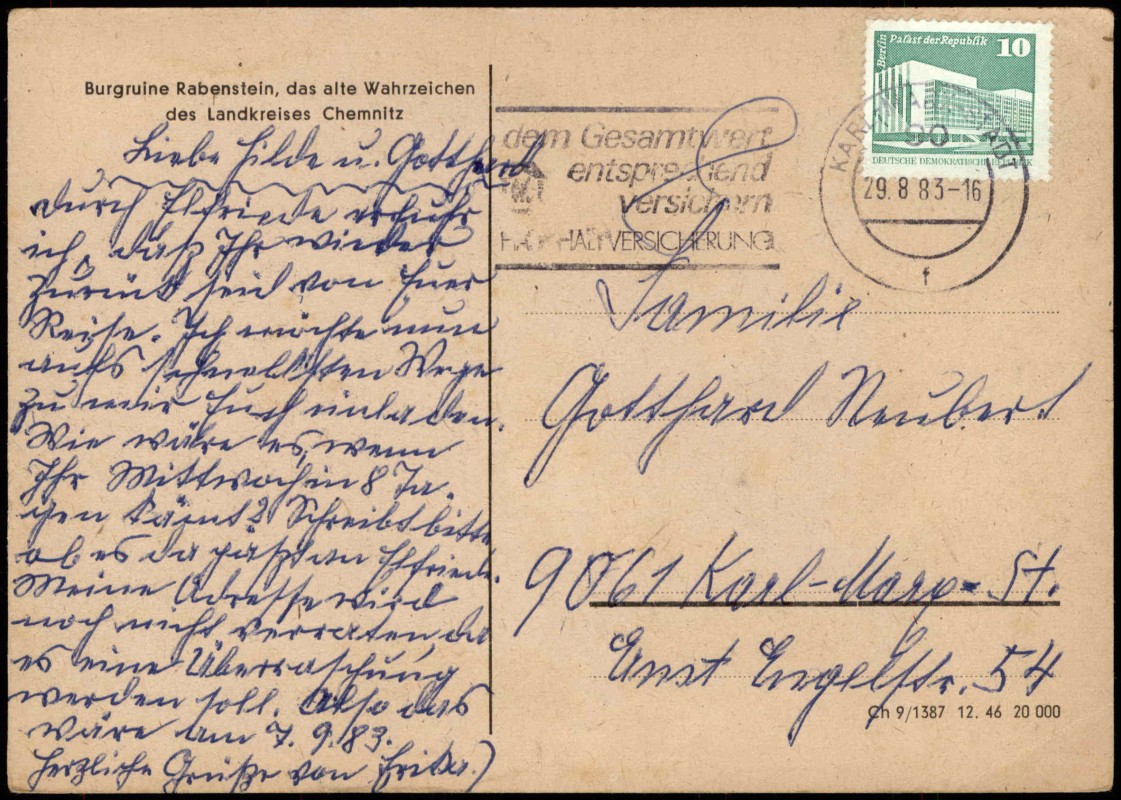 Burgruine Rabenstein, das alte Wahrzeichen
des Landkreises Chemnitz
Liebe Hilde u. Gotthard
durch Elfriede erfuhr
ich, daß Ihr wieder
zurück seid von Euer
Reise. Ich möchte nun
aufs schnellsten Wege
zu mir Euch einladen.
Wie wäre es, wenn
Ihr Mittwoch in 8 Ta-
gen kämt? Schreibt bitte
ob es da paßt an Elfriede.
Meine Adresse wird
noch nicht verraten da
es eine Überraschung
werden soll. Also das
wäre am 7. 9. 83.
Herzliche Grüße von Erika.)
Berlin Palast der Republik 10
DEUTSCHE DEMOKRATISCHE REPUBLIK
dem Gesamtwert
entsprechend
versichern
HAUSHALTVERSICHERUNG
KARL-MARX-STADT
90
29.8.83-16
f
Familie
Gotthard Neubert
9061 Karl-Marx-St.
Ernst Engelstr. 54
Ch 9/1387 12. 46 20 000